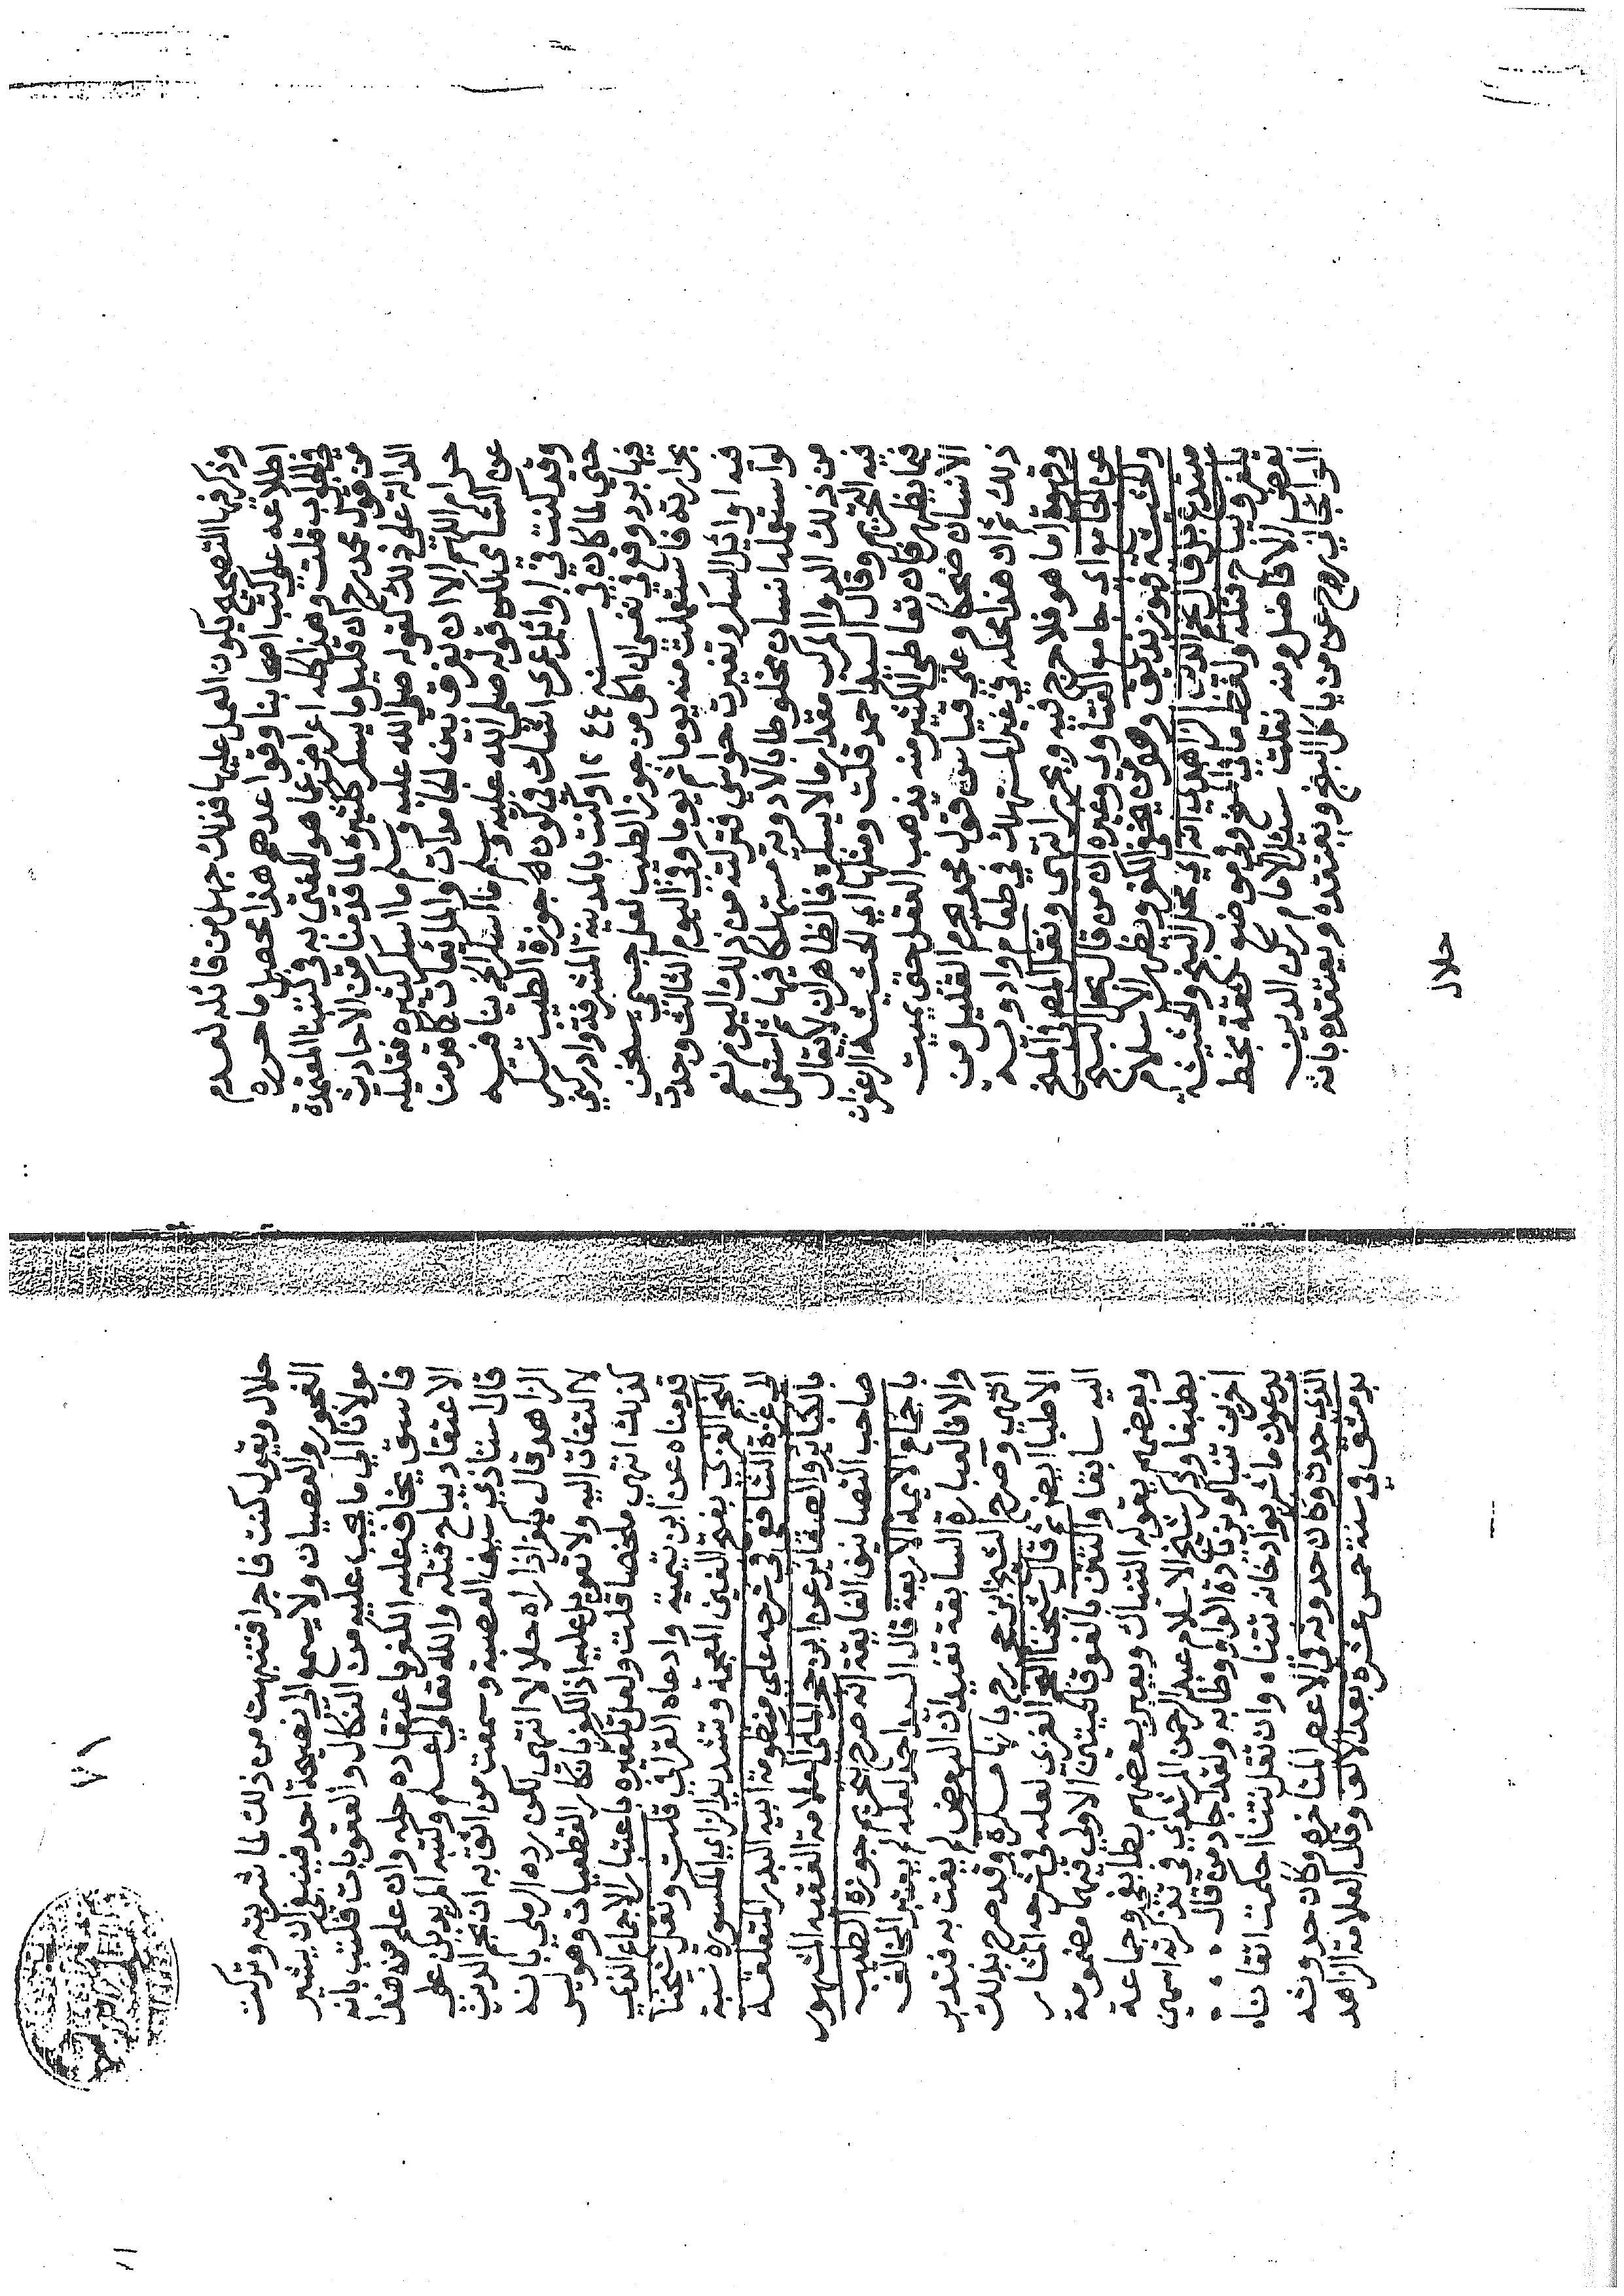 وذكر فيها التصحيح يكون العمل عليها فذلك جهل من قائله لعدم
اطلاعه على كتب اصحابنا وقواعدهم هذا محصل ما حرره
في المطلوب قلت وهذا كله اعراض عما هو المفتى به في كتبنا المعتمدة
من قول محمد رح ان قليل ما يسكر كثيره لما قدمنا من الاحاديث
الدالة على ذلك لقوله صلى الله عليه وسلم ما اسكر كثيره فقليله
حرام اللهم الا ان يفرق بين الجامدات والمايعات كما قدمنا
عن الشامي لكن قوله صلى الله عليه وسلم ما اسكر الخ ينافيه
وقد كنت في اوائل عمري اشك في كون جوزة الطيب تسكر
حتي لما كان في سنه ١٢٤٤ وكنت بالمدينة المشرفة وادركني
فيها برد وقع في نفسي ان اكل من جوز الطيب لعل جسمي يسخن
بحرارته فاستعملت منه يوما ثم يوما وفي اليوم الثالث وجدت
فيه اوائل السكر وتغيرت حواسي فتركته من ذلك اليوم نعم
لو استعملها انسان مخلوطا بالادوية مستهلكا فيها ثم استعمل
من ذلك الدوا المركب مقدار ما لا يسكره فالظاهر ان لا يقال
فيه التحريم وقال السيد احمد قلت ومثلها اي الحشيشة الزعفران
فيما يظهر فان تعاطي الكثير منه يذهب العقل حتى يميت
الانسان ضحكا وعلي قياس قول محمد يحرم القليل من
ذلك ثم ان هذا محله في غير المستهلك في طعام وادويه
وقهوة اما هو فلا حرج فيه ويحرر انتهى ونقل المص في المنح
عن الجامع اي جامع الفتاوى وغيره ان من قال بحل البنج
والحشيشة فهو زنديق وهو من يخفي الكفر ويظهر الاسلام
مبتدع بل قال نجم الدين الزاهدي انه اي محل البنج والحشيشة
يكفر ويباح قتله ولفظ ما في المنح وفي موضع ثقة بخط
بعض الافاضل ومنه نقلت سئل الامام ركن الدين
الوانجاني رح عن من ياكل البنج ويعتقده ويعتقده بانه
حلال
٧١
حلال ويقول كنت فاجرا فتنبهت من ذلك لما شربته وتركت
الفجور والعصيان ولا يسمع الى نصيحة احد فينبغي ان يشير
مولانا الي ما يجب عليه من النكال والعقوبات فكتب بانه
فاسق يخاف عليه الكفر باعتقاده حله وان علم من هذا
الاعتقاد يباح قتله والله تعالى اعلم وكتبه المريدين علي
قال استاذي سيف العصبة وسمعت من اثق به ان نجم الدين
الزاهد قال يكفر اذا راه حلالا انتهى لكن رده الرملي بانه
لا التفات اليه ولا تعويل عليه اذ الكفر بانكار القطعيات وهو ليس
كذلك انتهي ملخصا قلت ولعل تكفيره باعتبار الاجماع الذي
قدمناه عن ابن تيمية وادعاه القرافي قلت ونقل شيخنا
النجم الغزي بفتح الغين المعجمة وتشديد الزاي المكسورة نسبة
الى غزة الشافعي في شرحه على منظومة ابيه البدر المتعلقه
بالكبائر والصغاير عن ابن حجر المكي العلامة الفقيه المشهور
صاحب التصانيف الفايقة انه صرح بتحريم جوزة الطيب
باجماع الايمة الاربعة قال السيد احمد لعله لم يعتبر المخالف
والا فالعبارة السابقة تفيد ان البعض لم يفت به فتدبر
انتهي وصرح الشيخ ابن حجر رح بانها مسكرة وقد صرح بذلك
الاطبا ايضا ثم قال شيخنا النجم الغزي لعله في شرحه المشار
اليه سابقا والتتن بالفوقانيتين الاولي فيهما مضمومة
وبعضهم يقوله التنباك ويعبر بعضهم بطابغ وجماعة
بطبغا وذكر شيخ الاسلام عبد الرحمن المرشدي في تذكرته اسمين
اخرين تنباكو بزيادة الواو وطابه ولقد اجاد من قال
يدعون ما شربوا دخانه تتناه وان تقل نتنا احكمت اتقاناه
الذي حدث وكان حدوثه في الاعصر المتاخره وكان حدوثه
بدمشق في سنة خمس عشره بعد الالف وقال العلامة الزاهد